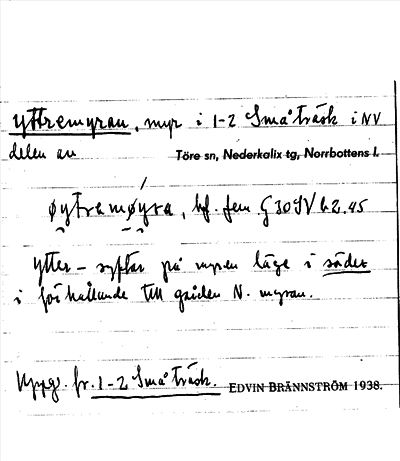 Yttremyran, myr i 1-2 Småträsk i NV
delen av Töre sn, Nederkalix tg, Norrbottens l.
øytramøyra, bf. fem. G 30 SV b 2. 45
Ytter- syftar på myrens läge i söder
i förhållande till gården N. myran.
Uppg. fr. 1-2 Småträsk. EDVIN BRÄNNSTRÖM 1938.